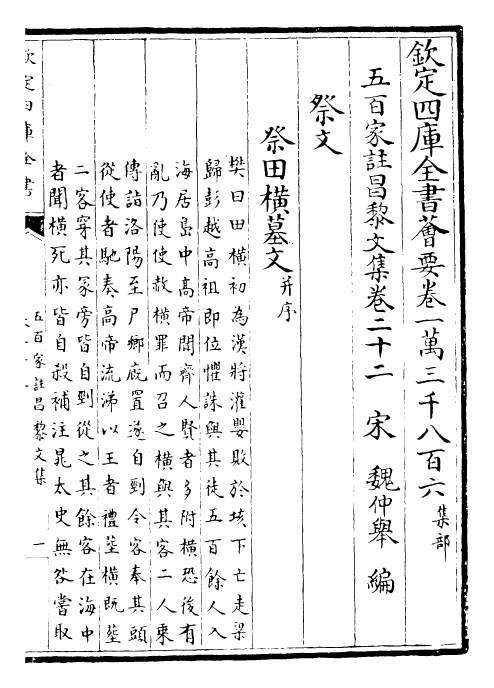 欽定四庫全書薈要卷一萬三千八百六集部
五百家註昌黎文集卷二十二 宋 魏仲舉 編
祭文
祭田橫墓文并序
樊曰田橫初為漢將灌嬰敗於垓下亡走梁
歸彭越高祖即位懼誅與其徒五百餘人入
海居島中高帝聞齊人賢者多附橫恐後有
亂乃使使赦橫罪而召之橫與其客二人乘
傳詣洛陽至尸鄉廐置遂自剄令客奉其頭
從使者馳奏高帝流涕以王者禮塟橫既塟
二客穿其冢旁皆自剄從之其餘客在海中
者聞橫死亦皆自殺補注晁太史無咎嘗取
欽定四庫全書
五百家註昌黎文集
一